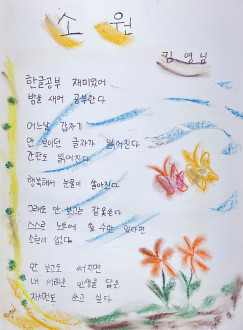 소 원
김영님
한글공부 재미있어
밤을 새어 공부한다
어느날 갑자기
안 보이던 글자가 읽어진다
간판도 읽어진다
행복해서 눈물이 쏟아진다
그래도 안 보고는 못쓴다
스스로 노트에 쓸 수만 있다면
소원이 없겠다
안 보고도 써지면
내 서러운 인생을 담은
자서전도 쓰고 싶다